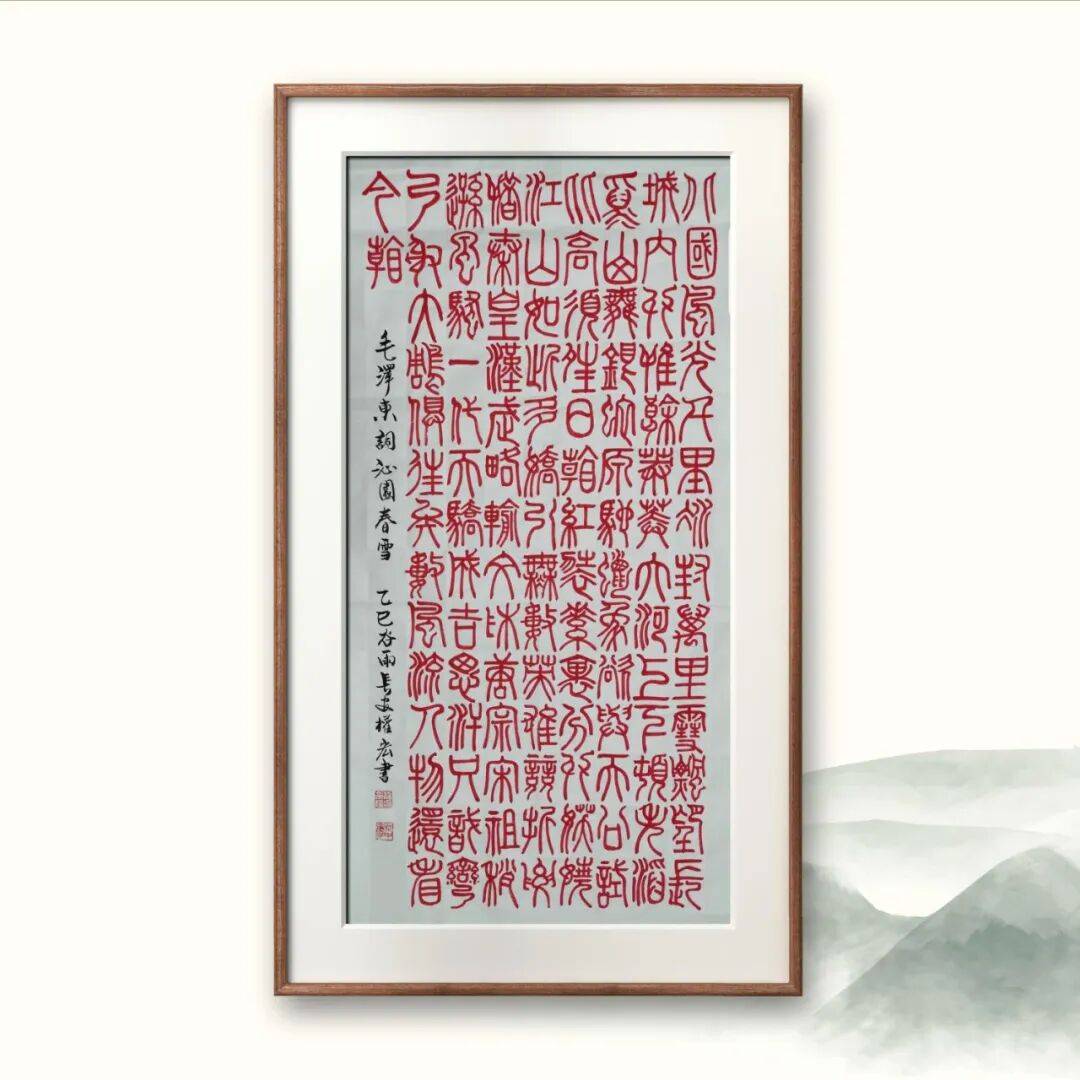 北國風光千里冰封萬里雪飄望長
城內外惟餘莽莽大河上下頓失滔
滔山舞銀蛇原馳蠟象欲與天公試
比高須晴日看紅裝素裹分外妖嬈
江山如此多嬌引無數英雄競折腰
惜秦皇漢武略輸文采唐宗宋祖稍
遜風騷一代天驕成吉思汗只識彎
弓射大雕俱往矣數風流人物還看
今朝
毛澤東詞沁園春雪 乙巳谷雨長安權宏書